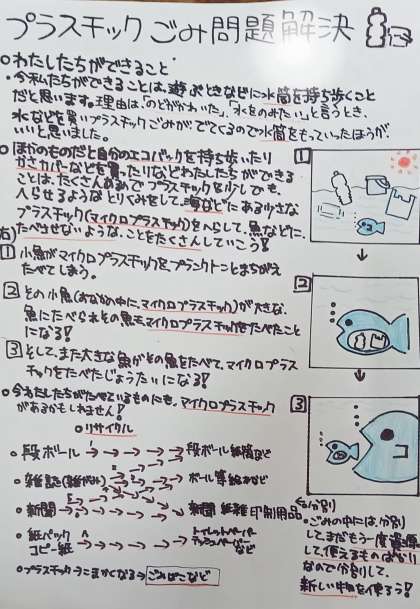 プラスチックごみ問題解決
○わたしたちができること
・今私たちができることは、遊ぶときなどに水筒を持ち歩くこと
だと思います。理由は、「のどがかわいた」、「水をのみたい」と言うとき、
水などを買いプラスチックごみが、でてくるので水筒をもっていったほうが、
いいと思いました。
○ほかのものだと自分のエコバックを持ち歩いたり
かさカバーなどを買ったりなどわたしたちができる
ことは、たくさんあるのでプラスチックを少しでも
へらせるようなとりくみをして、海などにある少さな
プラスチック(マイクロプラスチック)をへらして、魚などに、
たべさせないような、ことをたくさんしていこう!
右)
1 小魚がマイクロプラスチックをプランクトンとまちがえ
たべてしまう。
2 その小魚(おなかの中に、マイクロプラスチック)が大きな、
魚にたべられその魚もマイクロプラスチックをたべたこと
になる!
3 そして、また大きな魚がその魚をたべて、マイクロプラス
チックをたべたじょうたいになる!
・今わたしたちがたべているものにも、マイクロプラスチック
があるかもしれません!
○リサイクル
○段ボール→→→→→段ボール紙筒など
○雑誌(雑がみ)→→→→→ボール箱など
○新聞→→→→→新聞 紙 雑誌 印刷用品
○紙パック
コピー紙→→→→→トイレットペーパー
ティッシュペーパー
など
○プラスチック→こまかくなる→ごみばこなど
1
2
3
○分別
・ごみの中には、分別
してまだもう一度資源
して使えるものばかり
なので分別して、
新しい物を使ろう!